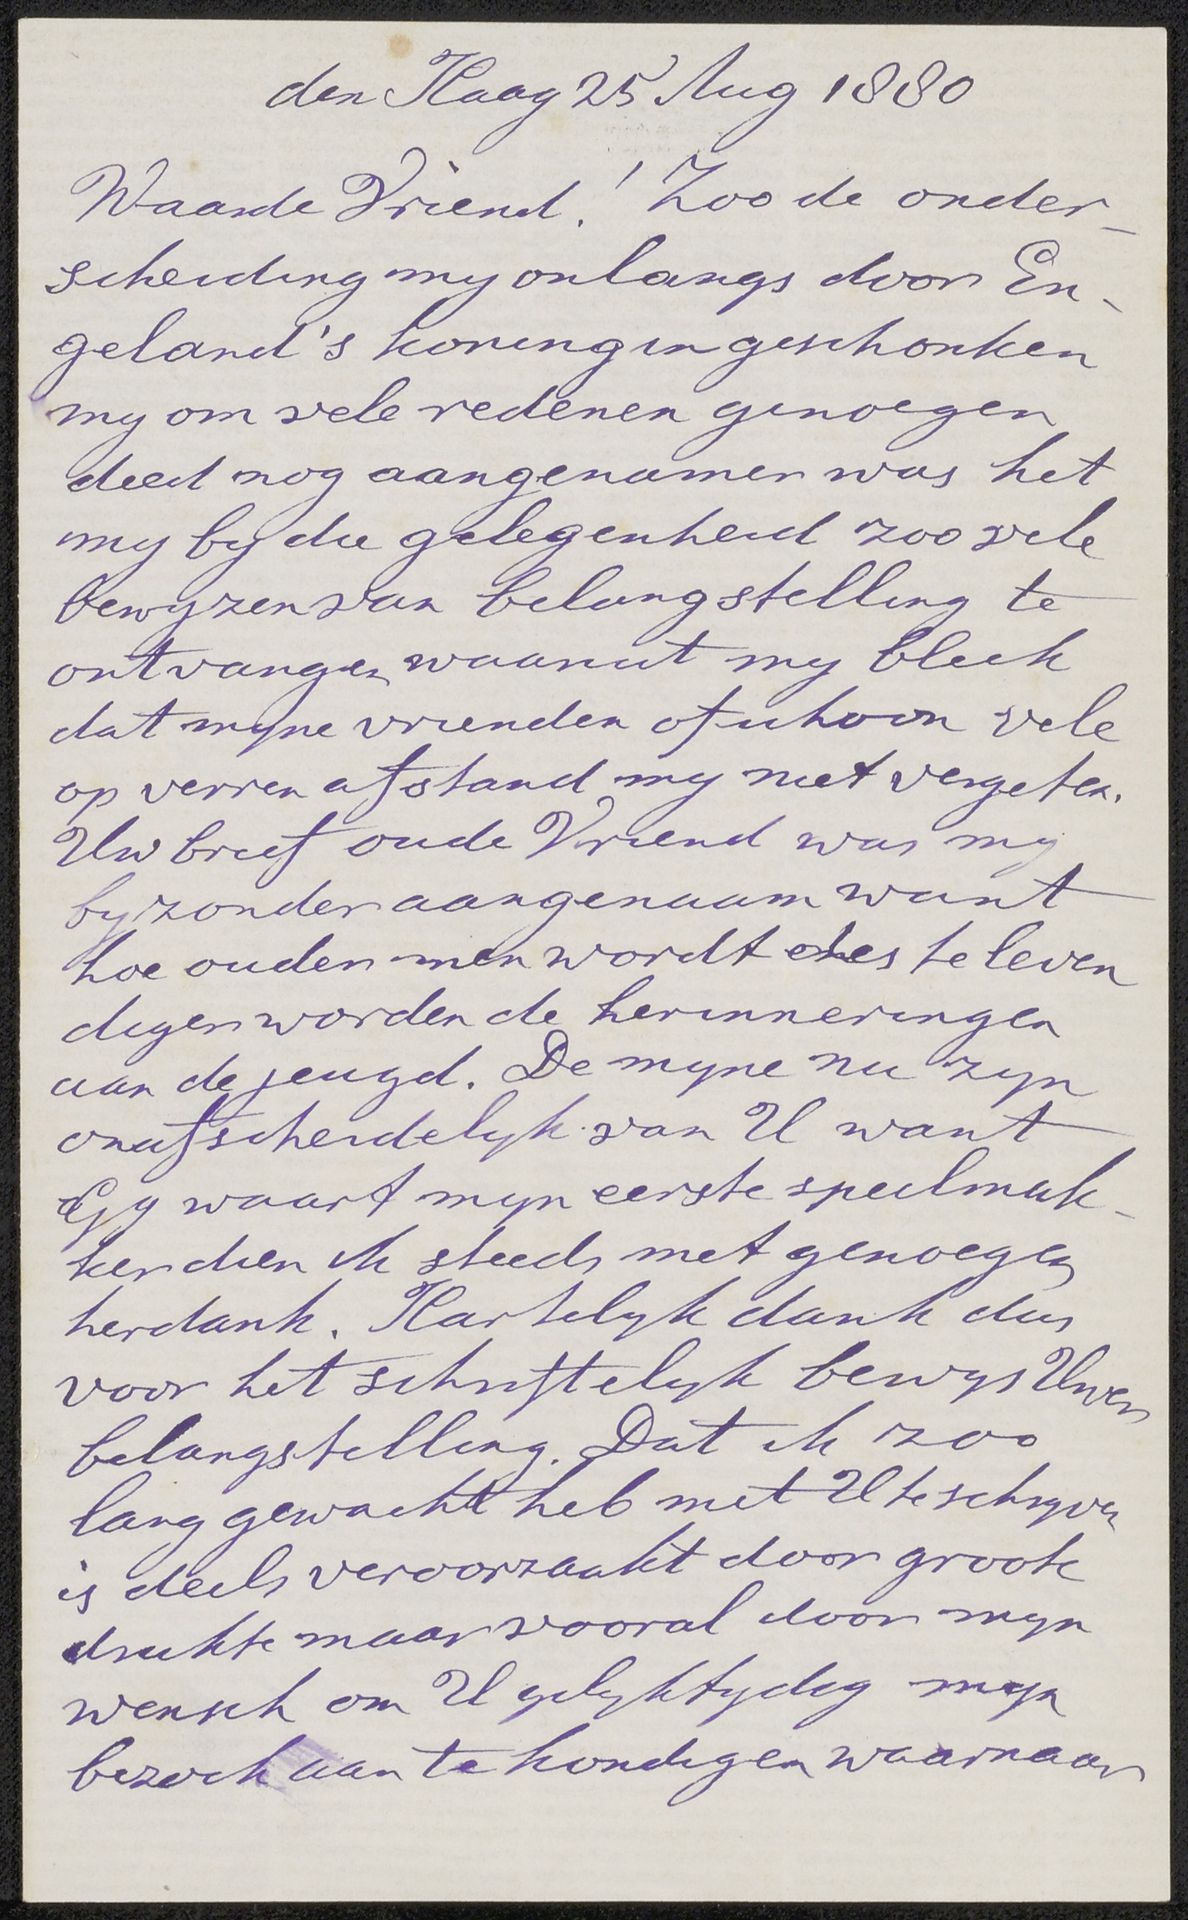 den Haag 25 Aug 1880
Waarde Vriend! Zoo de onder-
scheiding my onlangs door En-
geland's koningin geschonken
my om vele redenen genoegen
deed nog aangenamer was het
my by die gelegenheid zoo vele
bewyzen van belangstelling te
ontvangen waaruit my bleek
dat myne vrienden ofschoon vele
op verren afstand my niet vergeten.
Uw brief oude Vriend was my
byzonder aangenaam want
hoe ouder men wordt des te leven
diger worden de herinneringen
aan de jeugd. De myne nu zyn
onafscheidelyk van U want
Gy waart myn eerste speelmak-
ker dien ik steeds met genoegen
herdank. Hartelyk dank dus
voor het schriftelyk bewys Uwer
belangstelling. Dat ik zoo
lang gewacht heb met U te schryven
is deels veroorzaakt door groote
drukte maar vooral door myn
wensch om U gelyktydig myn
bezoek aan te kondigen waarnaar